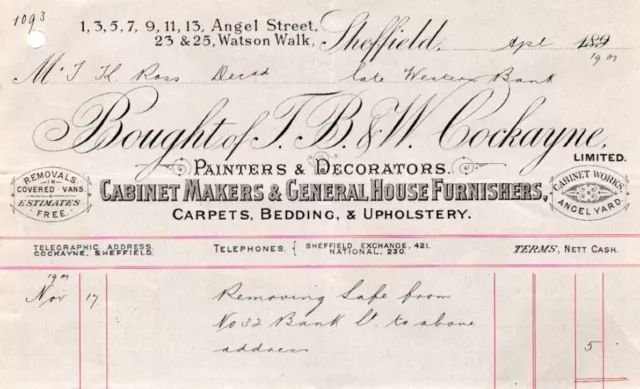 1093
1, 3, 5, 7, 9, 11, 13, Angel Street,
23 & 25, Watson Walk, Sheffield. Apl 189
1901
Mr T. K. Ross Decsd late Western Bank
Bought of T. B. & W. Cockayne,
LIMITED.
PAINTERS & DECORATORS.
REMOVALS
IN
COVERED VANS.
ESTIMATES
FREE.
CABINET MAKERS & GENERAL HOUSE FURNISHERS,
CABINET WORKS,
ANGEL YARD.
CARPETS, BEDDING, & UPHOLSTERY.
TELEGRAPHIC ADDRESS,
COCKAYNE, SHEFFIELD.
TELEPHONES, { SHEFFIELD EXCHANGE, 421.
NATIONAL, 230.
TERMS, NETT CASH.
Nov 17 Removing Safe from
No 32 Bank St. to above
address 5